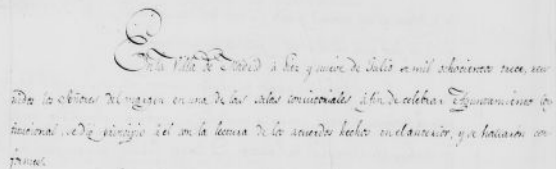 En la Villa de Madrid á diez y nueve de Julio de mil ochocientos trece, reu
nidos los Señores del margen en una de las salas consistoriales á fin de celebrar Ayuntamiento Cons
titucional, se dió principio á él con la lectura de los acuerdos hechos en el anterior, y se hallaron con
formes.